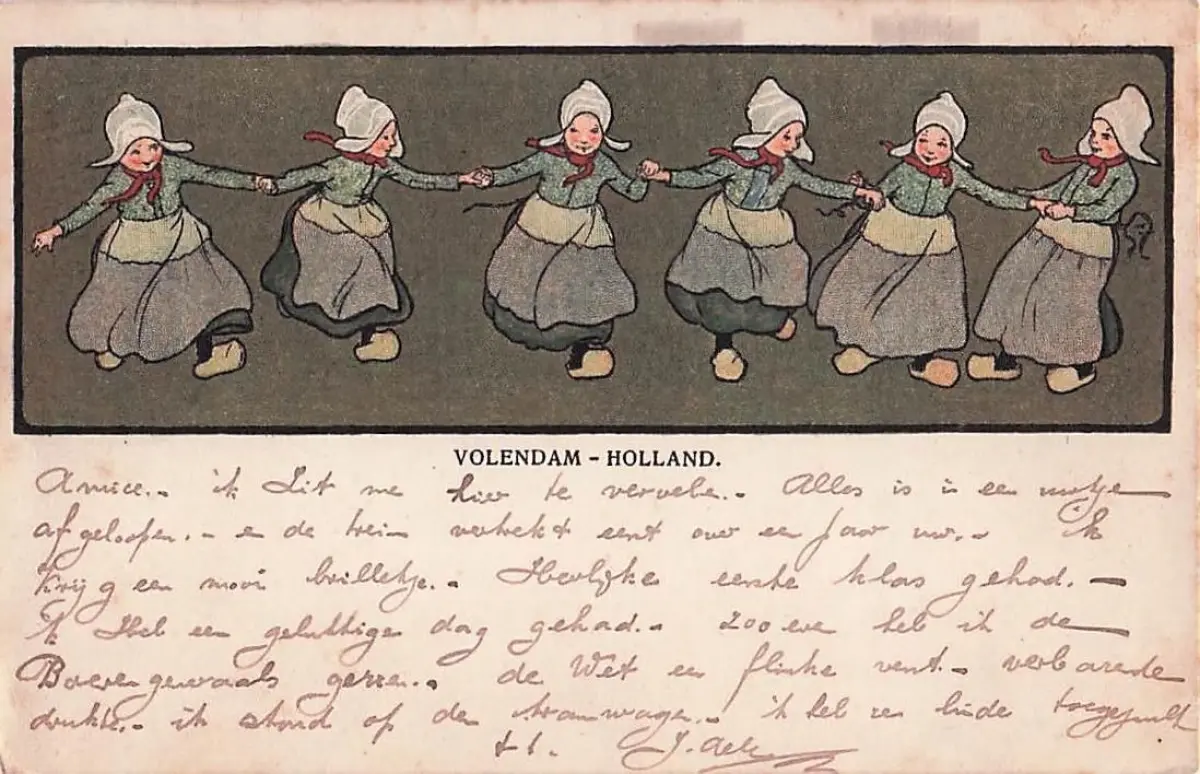 VOLENDAM - HOLLAND.
Amice.- ik zit me hier te vervele.- Alles is in een
afgeloopen.- en de trein vertrekt eerst over een paar uur.- Ik
krijg een mooi brilletje.- Heerlijke eerste klas gehad.-
Ik Heb een gelukkige dag gehad.- Zooeven heb ik de
Boerengeneraals gezien.- de Wet een flinke vent.- verbazende
drukte.- ik stond op den tramwagen.- ik heb ze luide toegejuicht
t t.